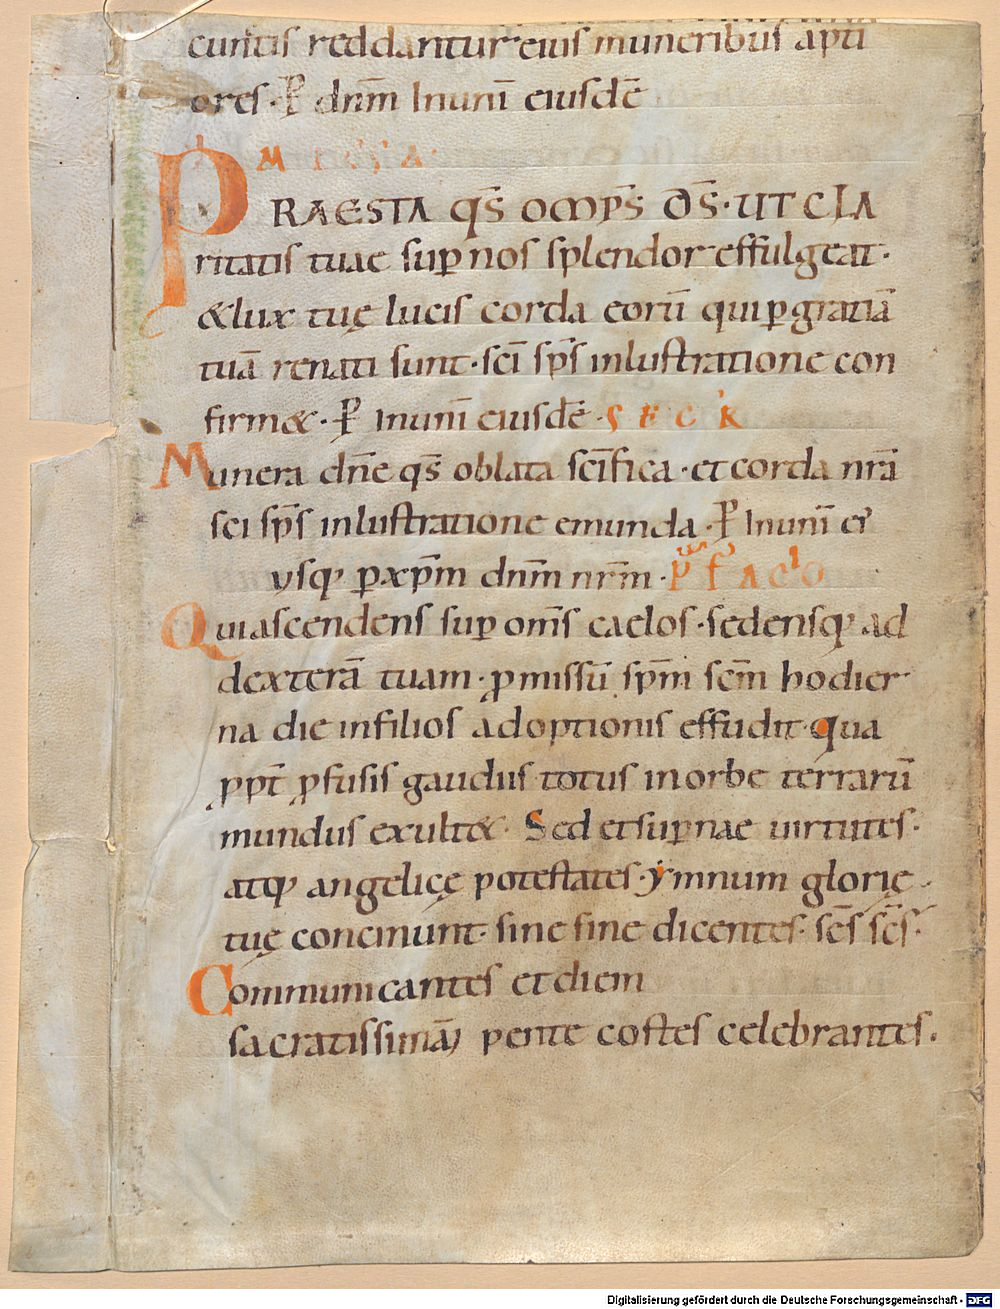 curitis reddantur eius muneribus apti
ores · P̄ dnm̄ Inunī eiusdē
MISSA
PRAESTA qs̄ omps̄ ds̄ · UT CLA
ritatis tuae sup̱ nos splendor effulgeat ·
& lux tuę lucis corda eorū qui p̱ gratiā
tuā renati sunt · scī sp̄s inlustratione con
firm& · P̄ Inunī eiusdē · SECR
Munera dn̄e qs̄ oblata scīfica · et corda nr̄a
sci sp̄s inlustratione emunda · P̄ Inunī ei
usq; p̱ xp̄m dnm̄ nr̄m · P̄FACIO
Qui ascendens sup̱ oms̄ caelos · sedensq; ad
dexterā tuam · ꝓmissū sp̄m scm̄ hodier
na die in filios adoptionis effudit · qua
ꝓpt̄ ꝓfusis gaudiis totus in orbe terrarū
mundus exult& · Sed et sup̱nae uirtutes ·
atq; angelicę potestates · ẏmnum glorię
tuę concinunt · sine fine dicentes · sc̄s sc̄s ·
Communicantes et diem
sacratissimā pente costes celebrantes ·
Digitalisierung gefördert durch die Deutsche Forschungsgemeinschaft - DFG